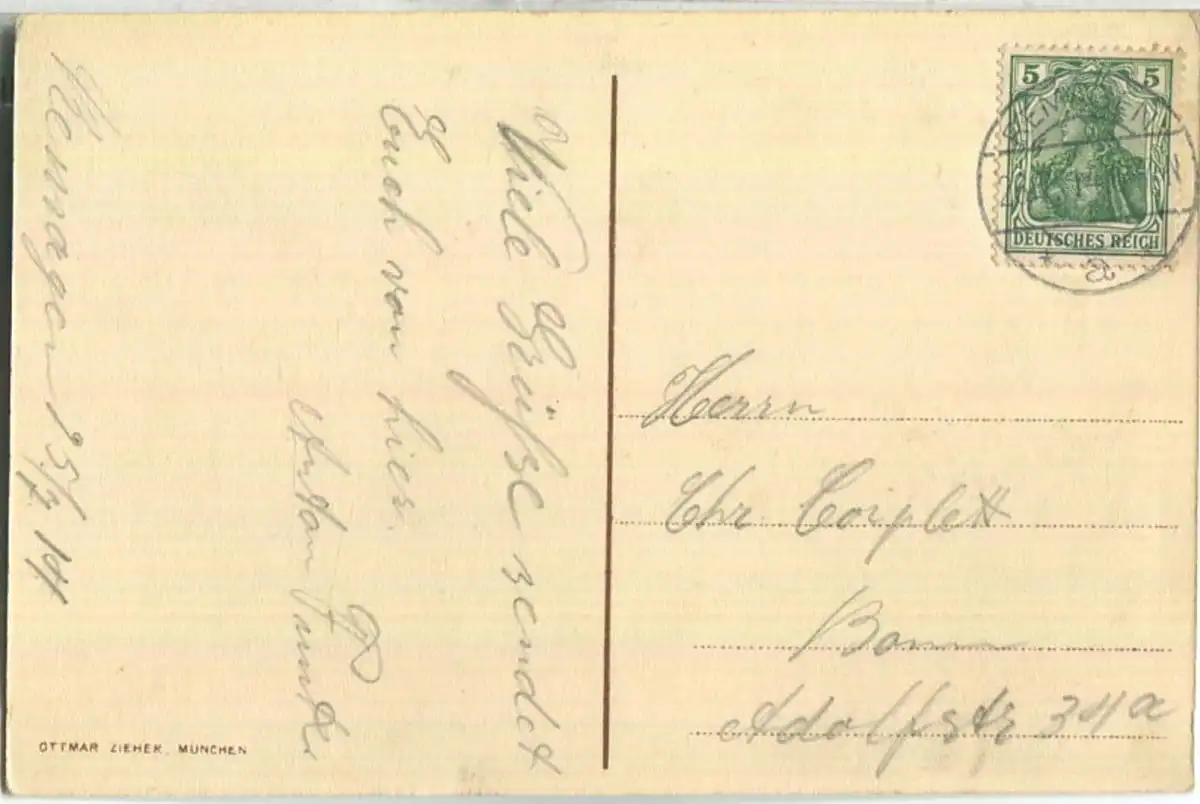 Remagen 25/7 14
Viele Grüße sendet
Euch von hier
5 5
DEUTSCHES REICH
Herrn
Chr
Bonn
Adolfstr 34a
OTTMAR ZIEHER, MÜNCHEN